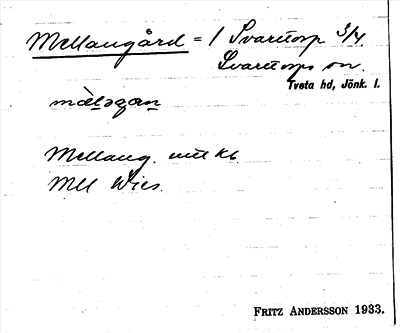 Mellangård = 1 Svarttorp 3/4.
Svarttorps sn.
Tveta hd, Jönk. l.
Mellang. enl. Kb.
Mell Wies.
FRITZ ANDERSSON 1933.